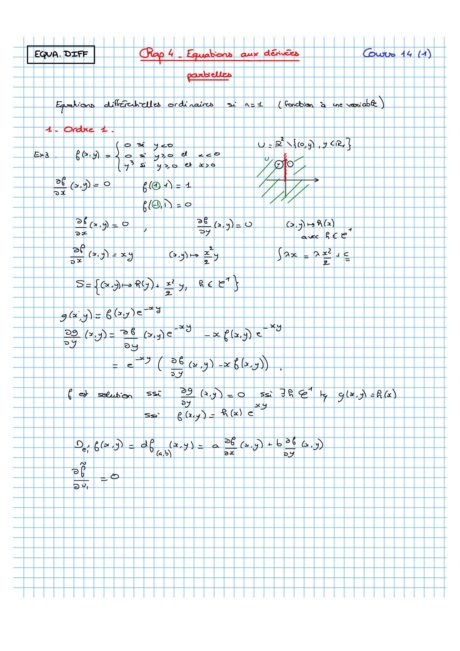 EQUA. DIFF
Chap 4 - Equations aux dérivées
partielles
Cours 14 (1)
Equations différentielles ordinaires si n=1 (fonction à une variable)
1 - Ordre 1.
f(x,y) = { 0 si y<0
0 si y≥0 et x<0
y³ si y≥0 et x>0
U = ℝ² \ {(0,y), y∈ℝ₊}
U
∂f/∂x (x,y) = 0 f(1,1) = 1
f(-1,1) = 0
∂f/∂x (x,y) = 0 , ∂f/∂y (x,y) = 0 (x,y) ↦ h(x)
avec h ∈ C¹
∂f/∂x (x,y) = xy (x,y) ↦ x²/2 y ∫λx = λ x²/2 + c
S = {(x,y) ↦ h(y) + x²/2 y, h ∈ C¹}
g(x,y) = f(x,y) e^-xy
∂g/∂y (x,y) = ∂f/∂y (x,y) e^-xy - x f(x,y) e^-xy
= e^-xy ( ∂f/∂y (x,y) - x f(x,y) ) .
f est solution ssi ∂g/∂y (x,y) = 0 ssi ∃ h C¹ tq g(x,y) = h(x)
ssi f(x,y) = h(x) e^xy
De₁' f(x,y) = df(a,b) (x,y) = a ∂f/∂x (x,y) + b ∂f/∂y (x,y)
∂f̃/∂v₁ = 0